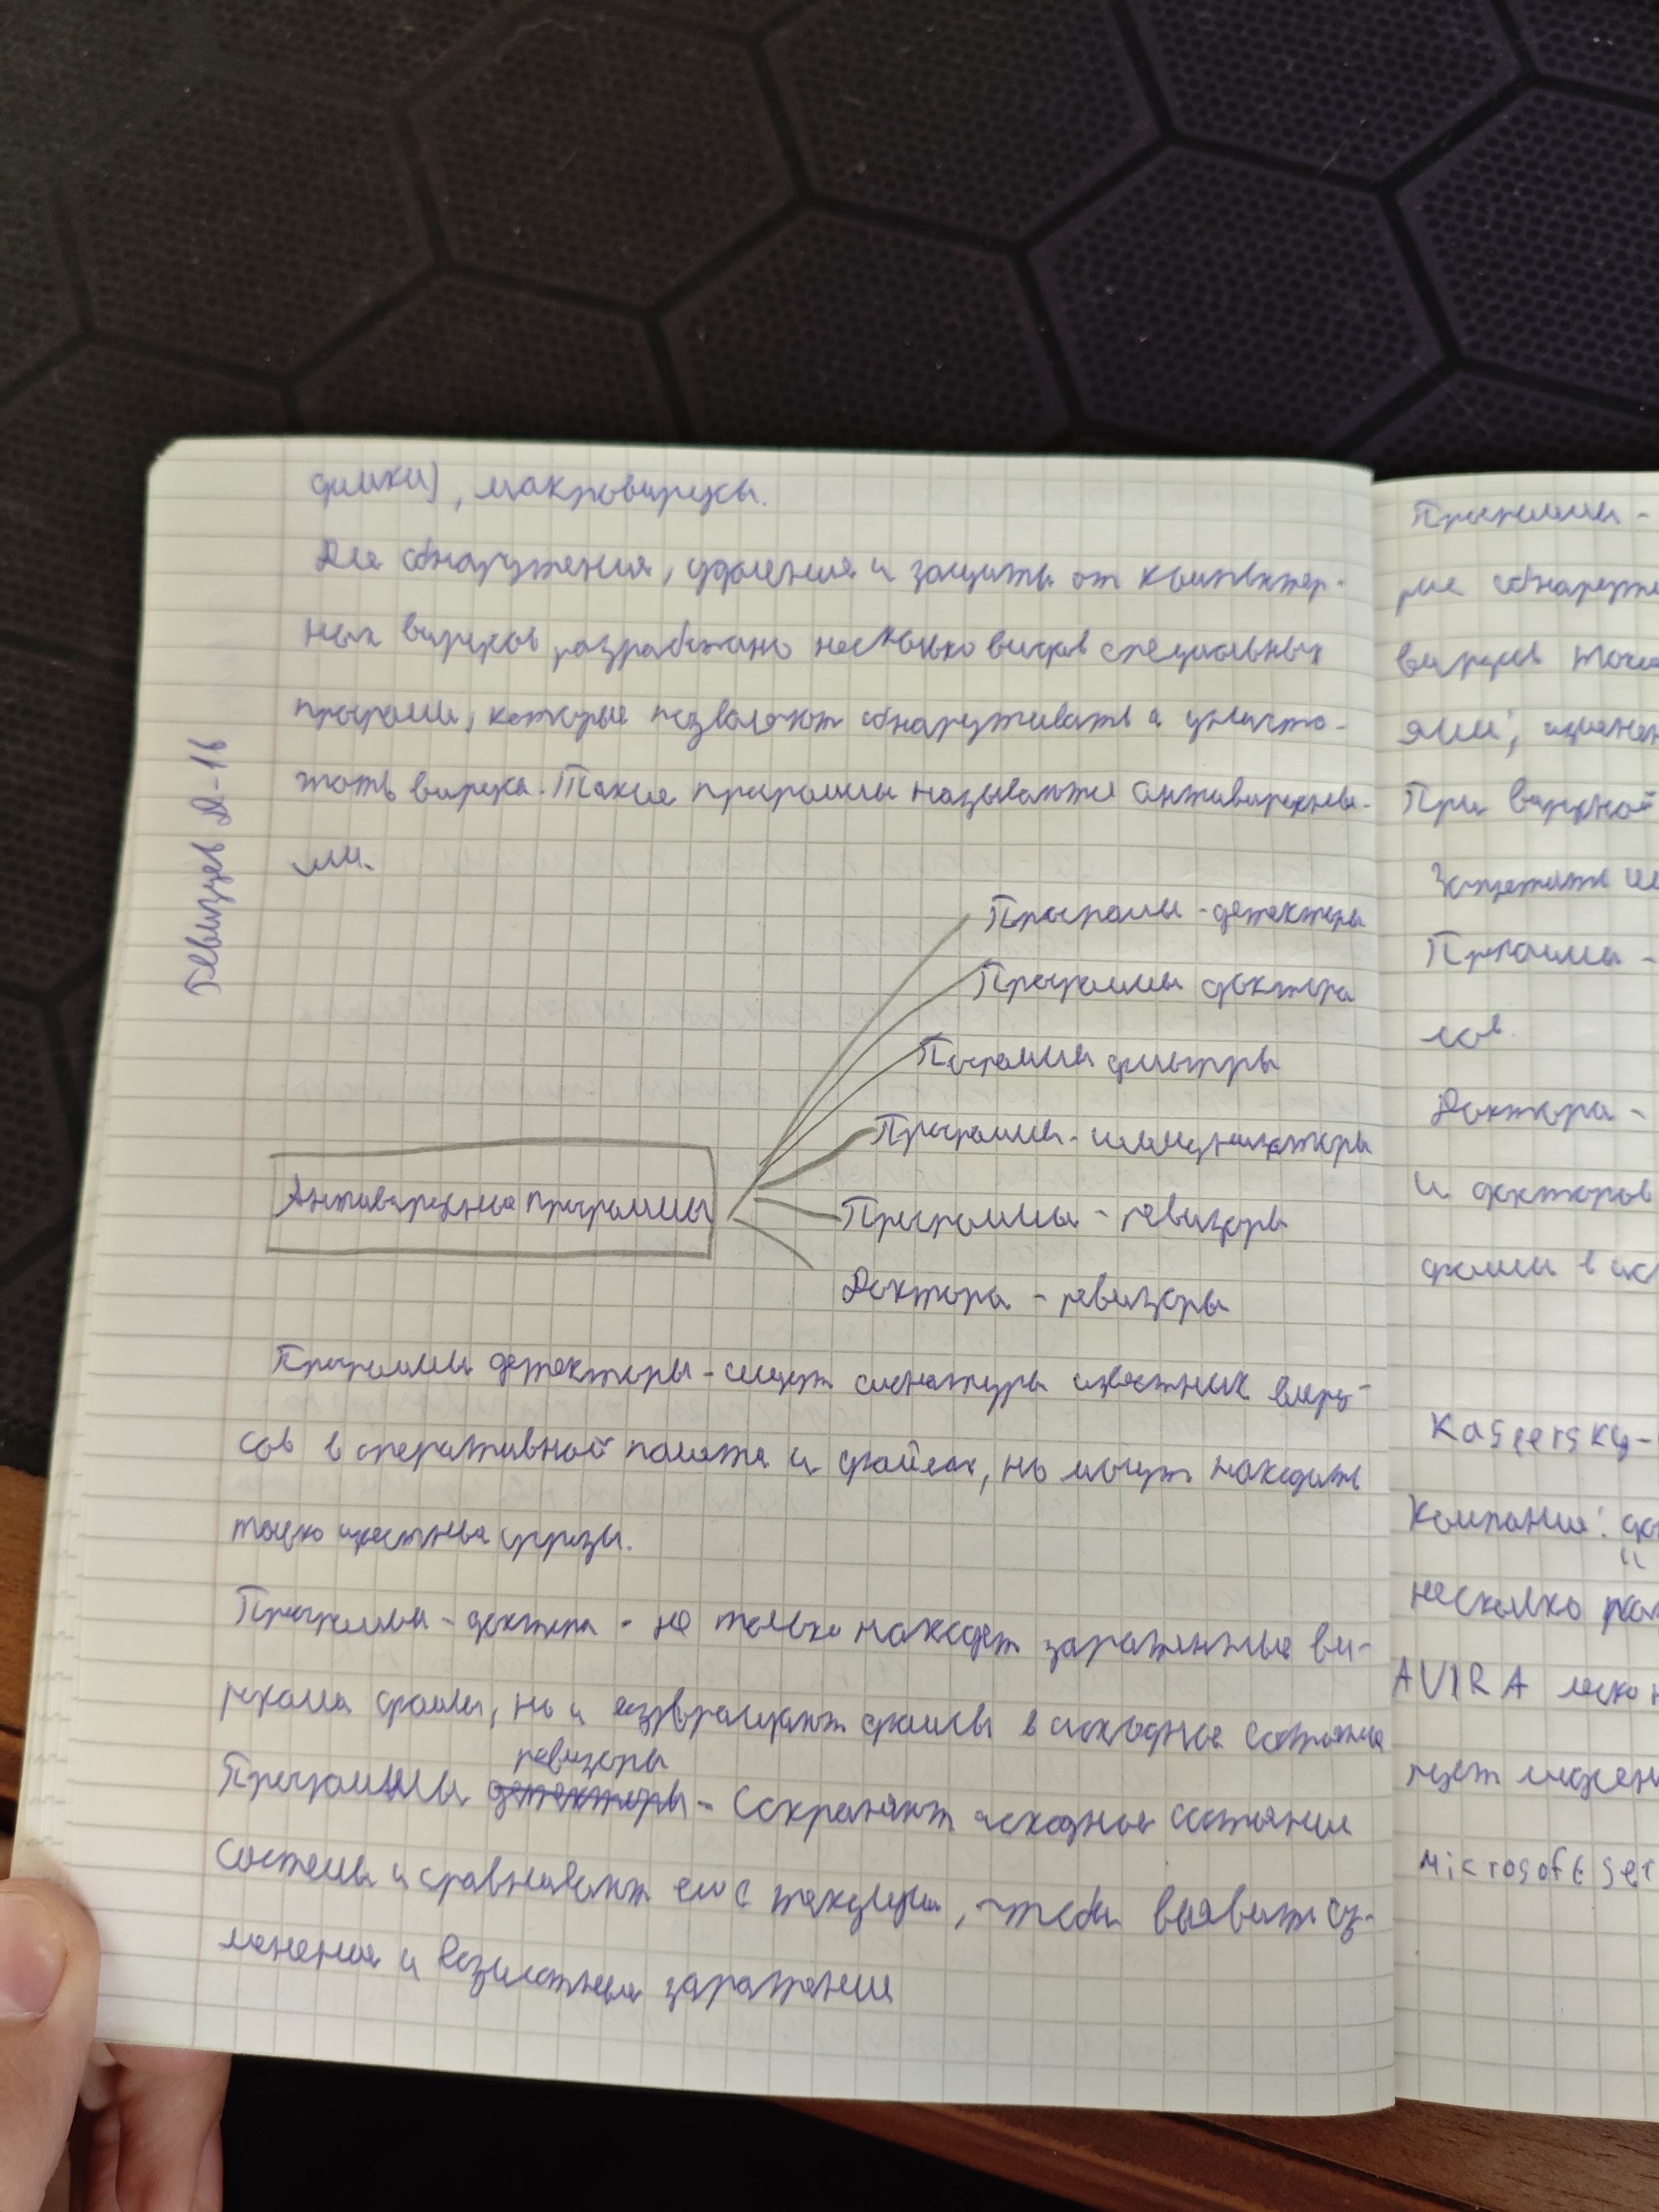 , макровирусы.
Для обнаружения, удаления и защиты от компьютер-
ных вирусов разработано несколько видов специальных
программ, которые позволяют обнаруживать и уничто-
жать вируса. Такие программы называются антивирусны-
ми.
Программы - детекторы
Программы доктора
Програмы фильтры
Программы - иммунизаторы
Антивирусные программы
Программы - ревизоры
Доктора - ревизоры
Программы детекторы - ищут сигнатуры известных виру-
сов в оперативной памяти и файлах, но могут находить
только известные угрозы.
Программы - доктора - не только находят зараженные ви-
русами файлы, но и возвращают файлы в исходное состояние
ревизоры
Программы детекторы - Сохраняют исходное состояние
системы и сравнивают его с текущим, чтобы выявить из-
менения и возможные заражения
А-16
Программы -
рые
вирусов
ями,
При вирусной
Запретить
Программы -
лов
Доктора -
и докторов
файлы в
Kaspersky -
Компания:
несколько
AVIRA легко
Microsoft